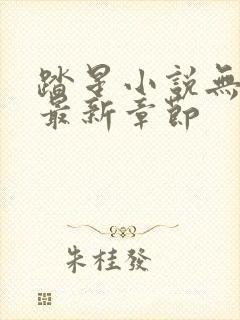 踏星小說無
最新章節
朱桂發